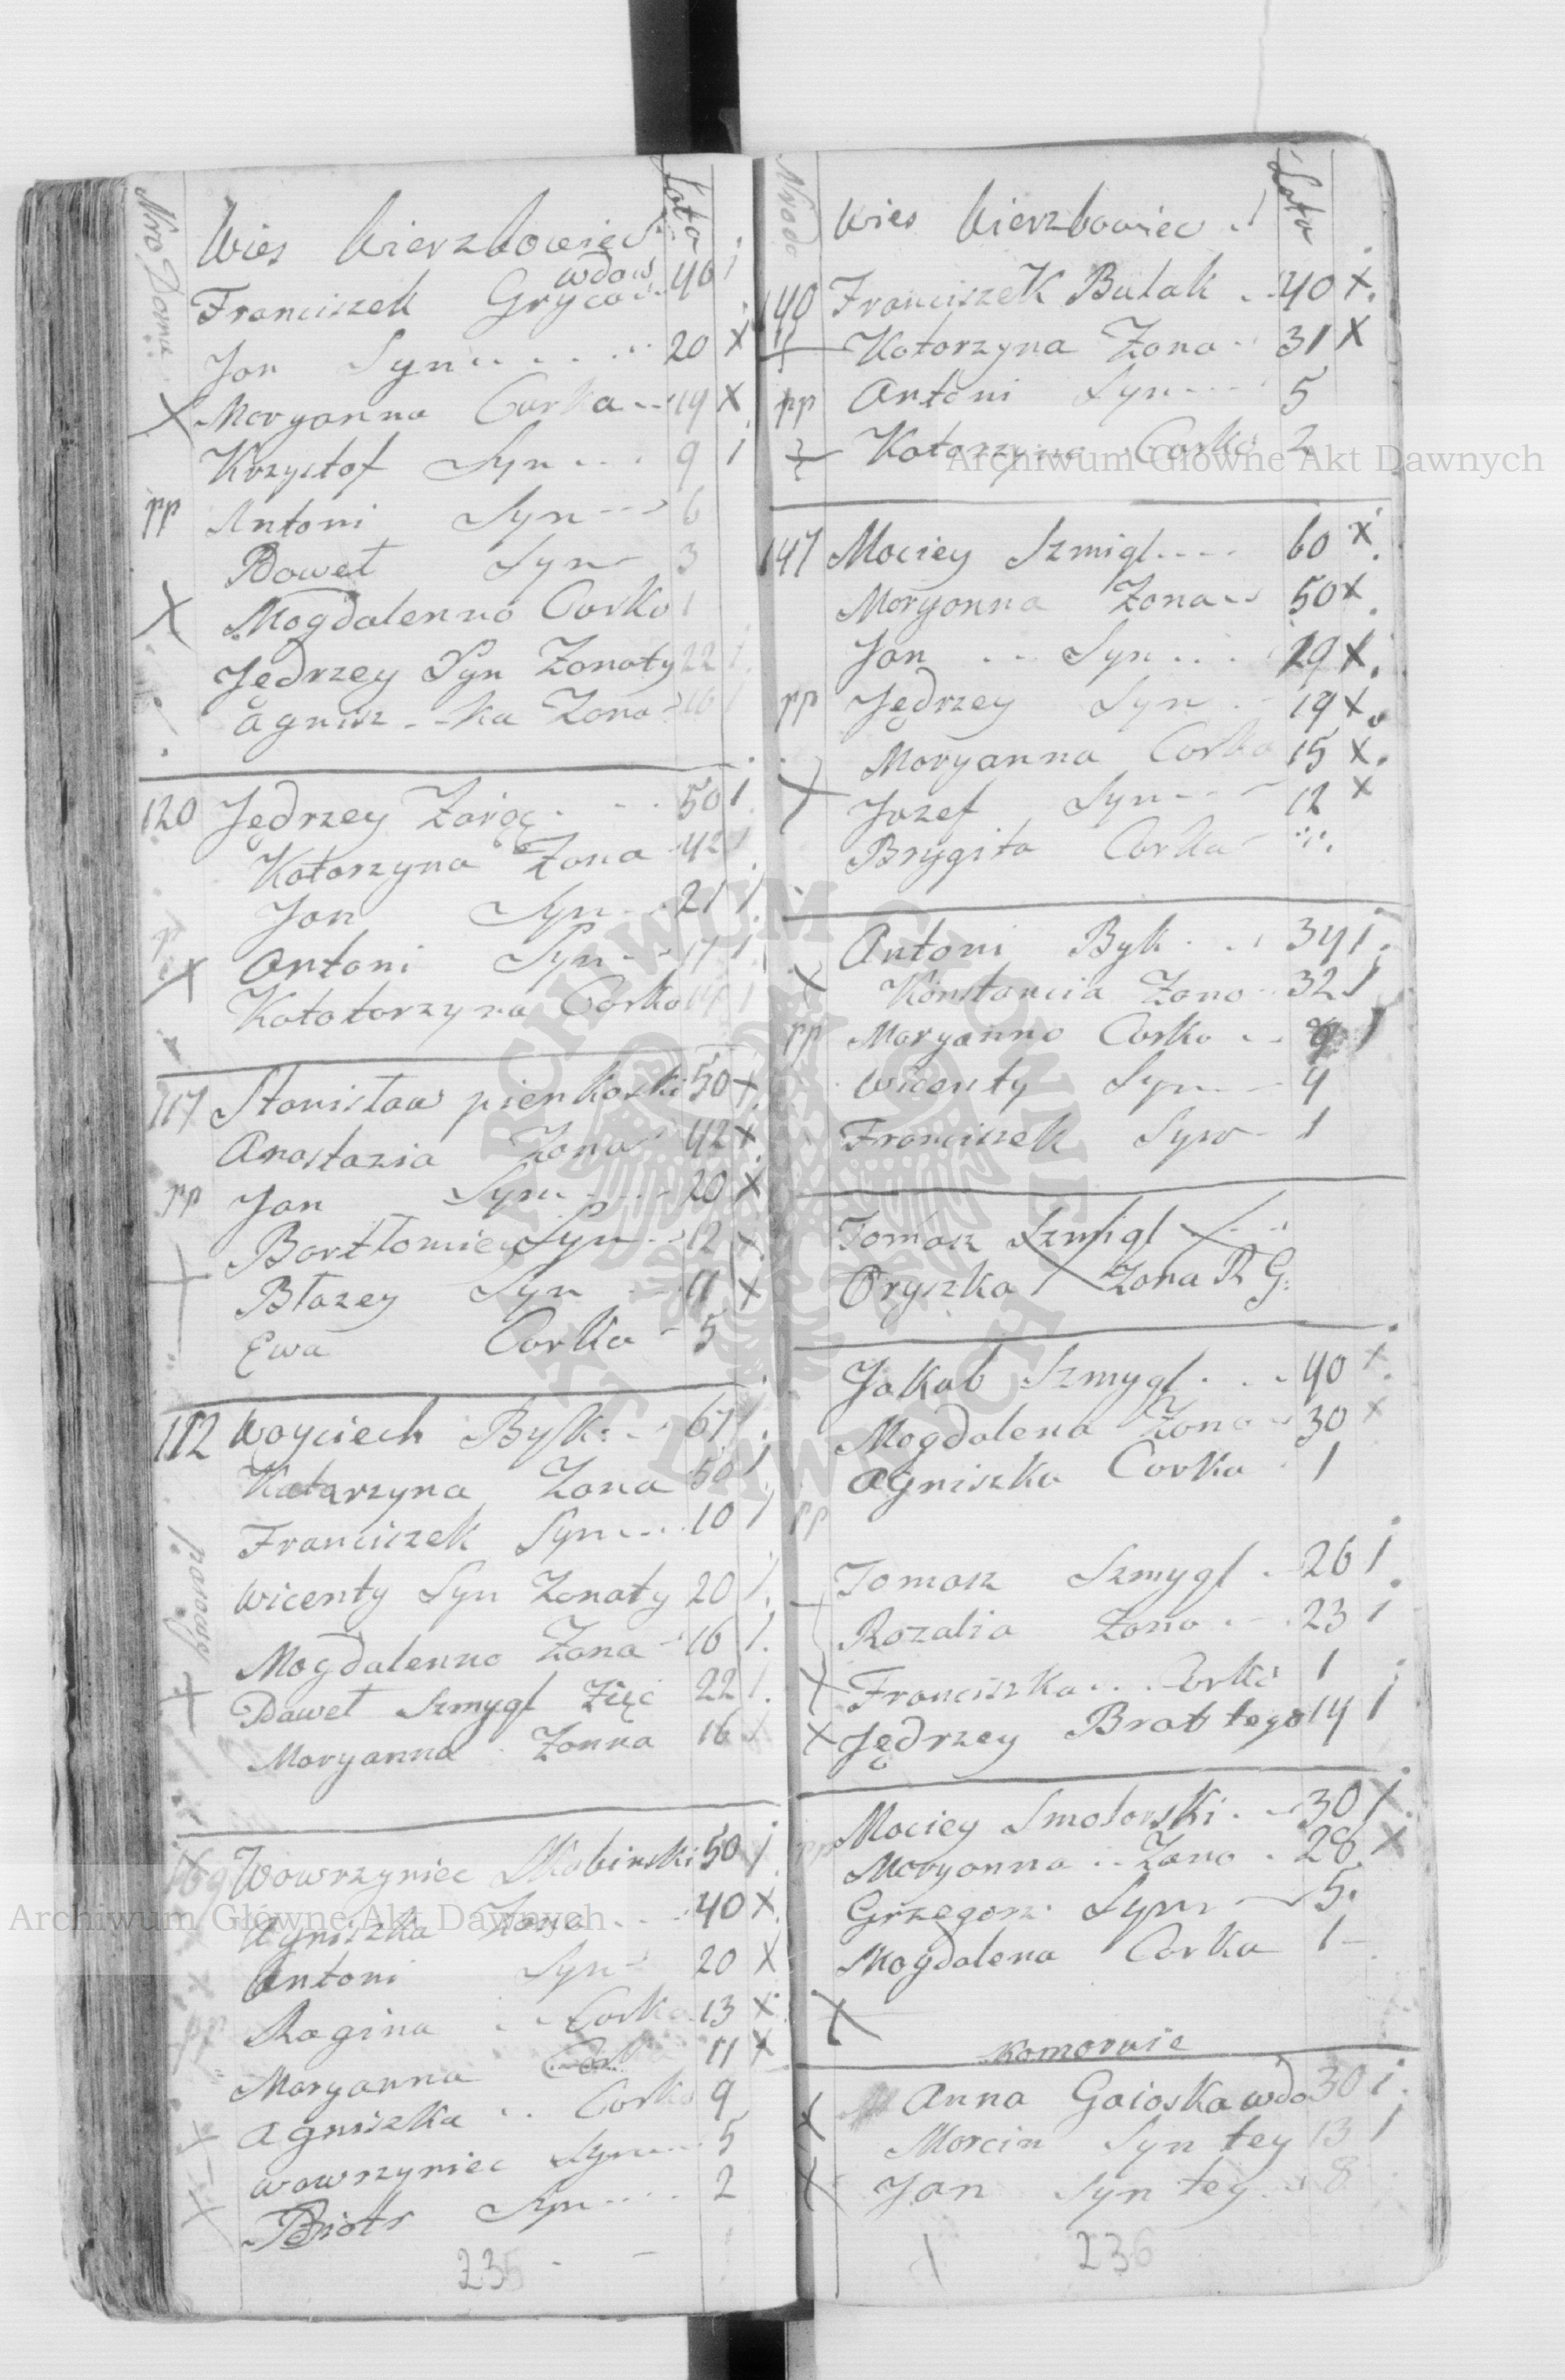 Nro Domu
Wies Wierzbowiec Lata
wdow
Franciszek Gryco 40 1
Jan Syn 20 X
X Maryanna Corka 19 X
Krzysztof Syn 9 1
pp Antoni Syn 6
Paweł Syn 3
X Magdalenna Corka 1
Jędrzey Syn Zonaty 22 1
Agnisz--ka Zona 16 1
120 Jędrzey 50 1
Katarzyna Zona 42 1
Jan Syn 21 1
Antoni Syn 17 1
X Katatarzyna Corka 1
117 Stanisław pienkoski 50 X
Anastazia Zona 42 X
pp Jan Syn 20 X
Bartłomiey Syn 12 X
Błazey Syn 11 X
Ewa Corka 5
112 Woyciech Byk 67 1
Katarzyna Zona 50 1
Franciszek Syn 10 1
Wicenty Syn Zonaty 20 1
Magdalenna Zona 16 1
Paweł Szmygl Zięć 22 1
Maryanna Zonna 16 1
169 Wawrzyniec Skobinski 50 1
Agniszka Zona 40 X
Antoni Syn 20 X
pp Ragina Corka 13 X
Maryanna Corka 11 X
Agniszka Corka 9
X Wawrzyniec Syn 5
X Piotr Syn 2
235
Nro do
Wies Wierzbowiec Lata
140 Franciszek Bulak 40 X
Katarzyna Zona 31 X
pp Antoni Syn 5
Katarzyna Corka 2
147 Maciey Szmigl 60 X
Maryanna Zona 50 X
Jan Syn 29 X
pp Jędrzey Syn 19 X
Maryanna Corka 15 X
X Jozef Syn 12 X
Brygita Corka
Antoni Byk 34 1
X Konstancia Zona 32 1
pp Maryanna Corka 9 1
Wicenty Syn 4
Franciszek Syn 1
Tomasz Szmigl
Oryszka Zona R G:
Jakub Szmygl 40 X
Magdalena Zona 30 X
Agniszka Corka 1
pp
Tomasz Szmygl 26 1
Rozalia Zona 23 1
X Franciszka Corka 1
X Jędrzey Brat tego 14 1
pp Maciey Smolarski 30 X
Maryanna Zona 28 X
Grzegorz Syn 5
Magdalena Corka 1
X
Komornie
X Anna Gaioska wdo 30 1
Marcin Syn tey 13 1
X Jan Syn tey 8
236
Archiwum Główne Akt Dawnych
Archiwum Główne Akt Dawnych
ARCHIWUM GŁÓWNE
AKT DAWNYCH